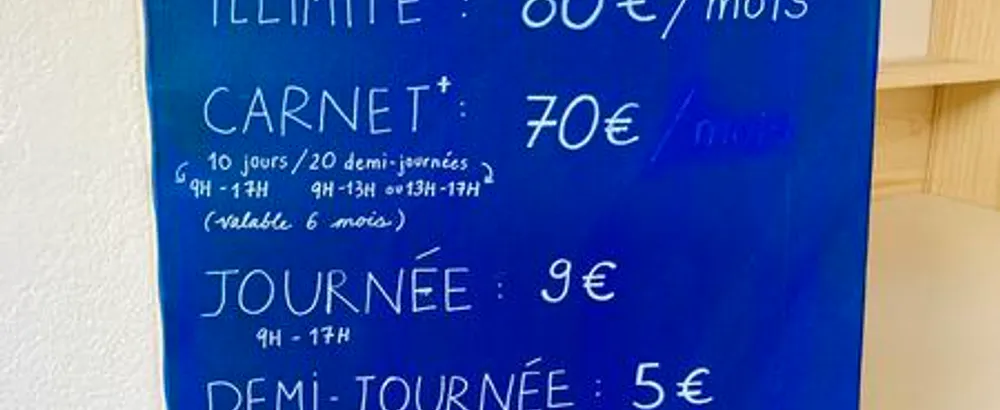 ILLIMITÉ : 60€/mois
CARNET+ : 70€
10 jours/20 demi-journées
9H-17H 9H-13H ou 13H-17H
(valable 6 mois)
JOURNÉE : 9€
9H - 17H
DEMI-JOURNÉE : 5€